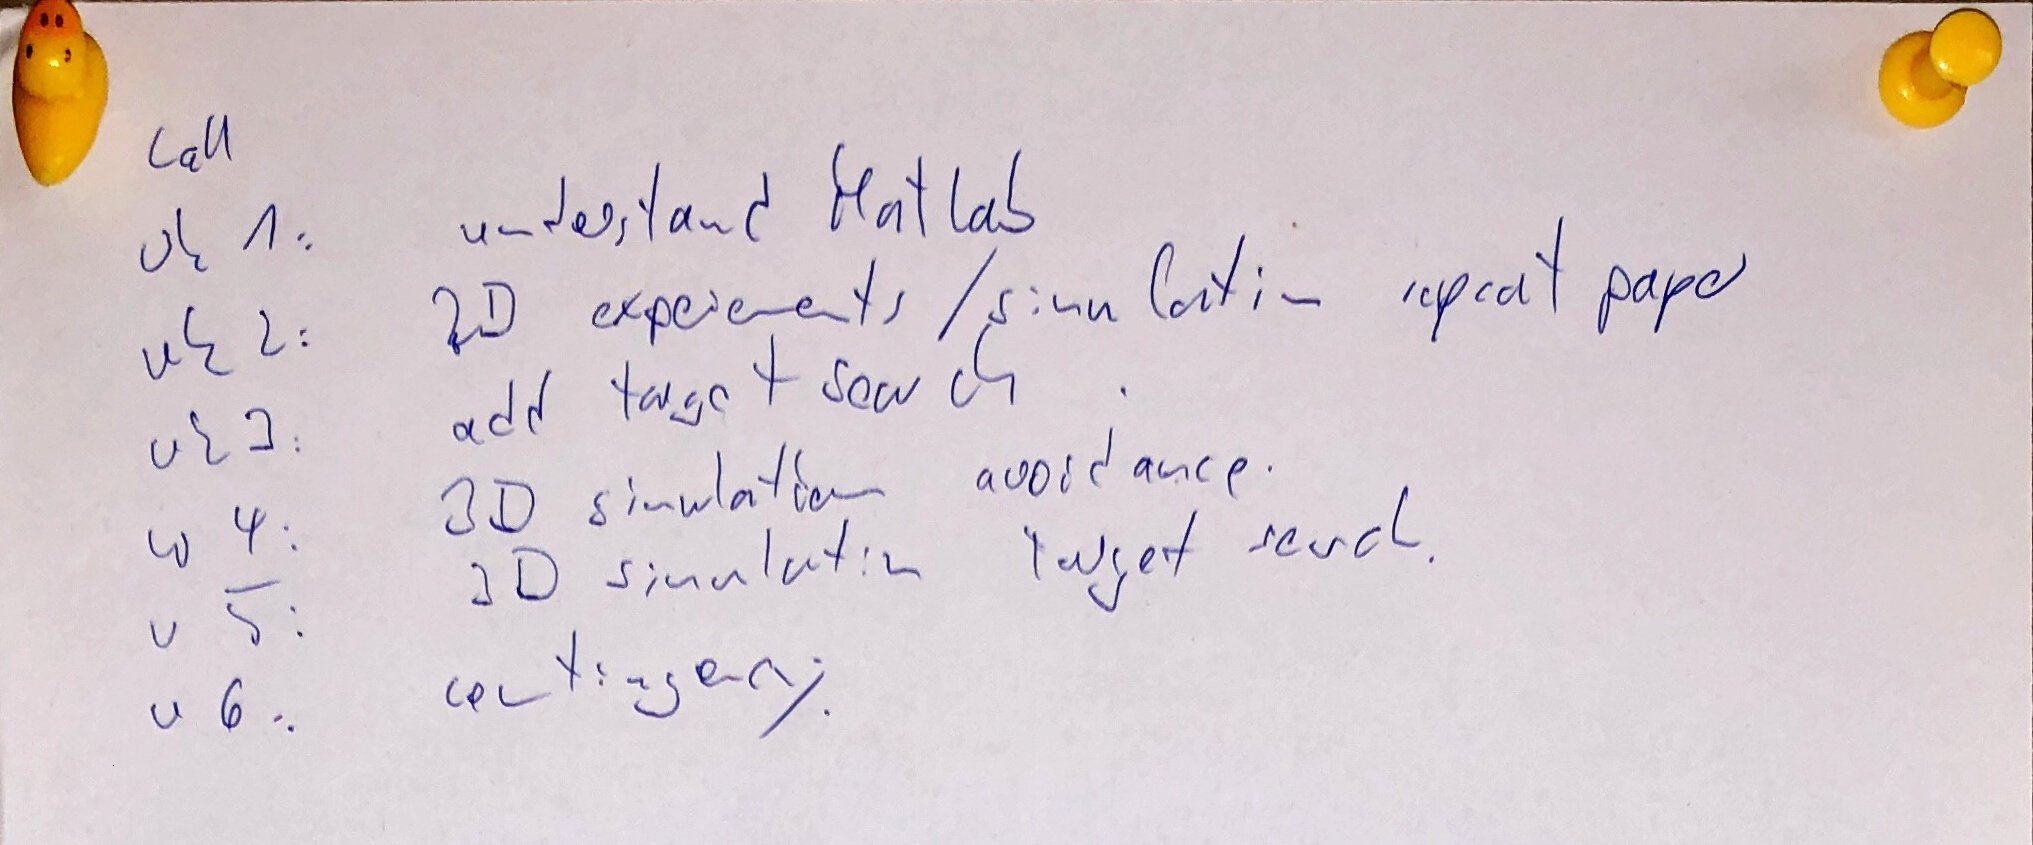 Call
wk 1: understand Matlab
wk 2: 2D experiments / simulation repeat paper
wk 3: add target search.
w 4: 3D simulation avoidance.
w 5: 3D simulation target search.
w 6: contingency.